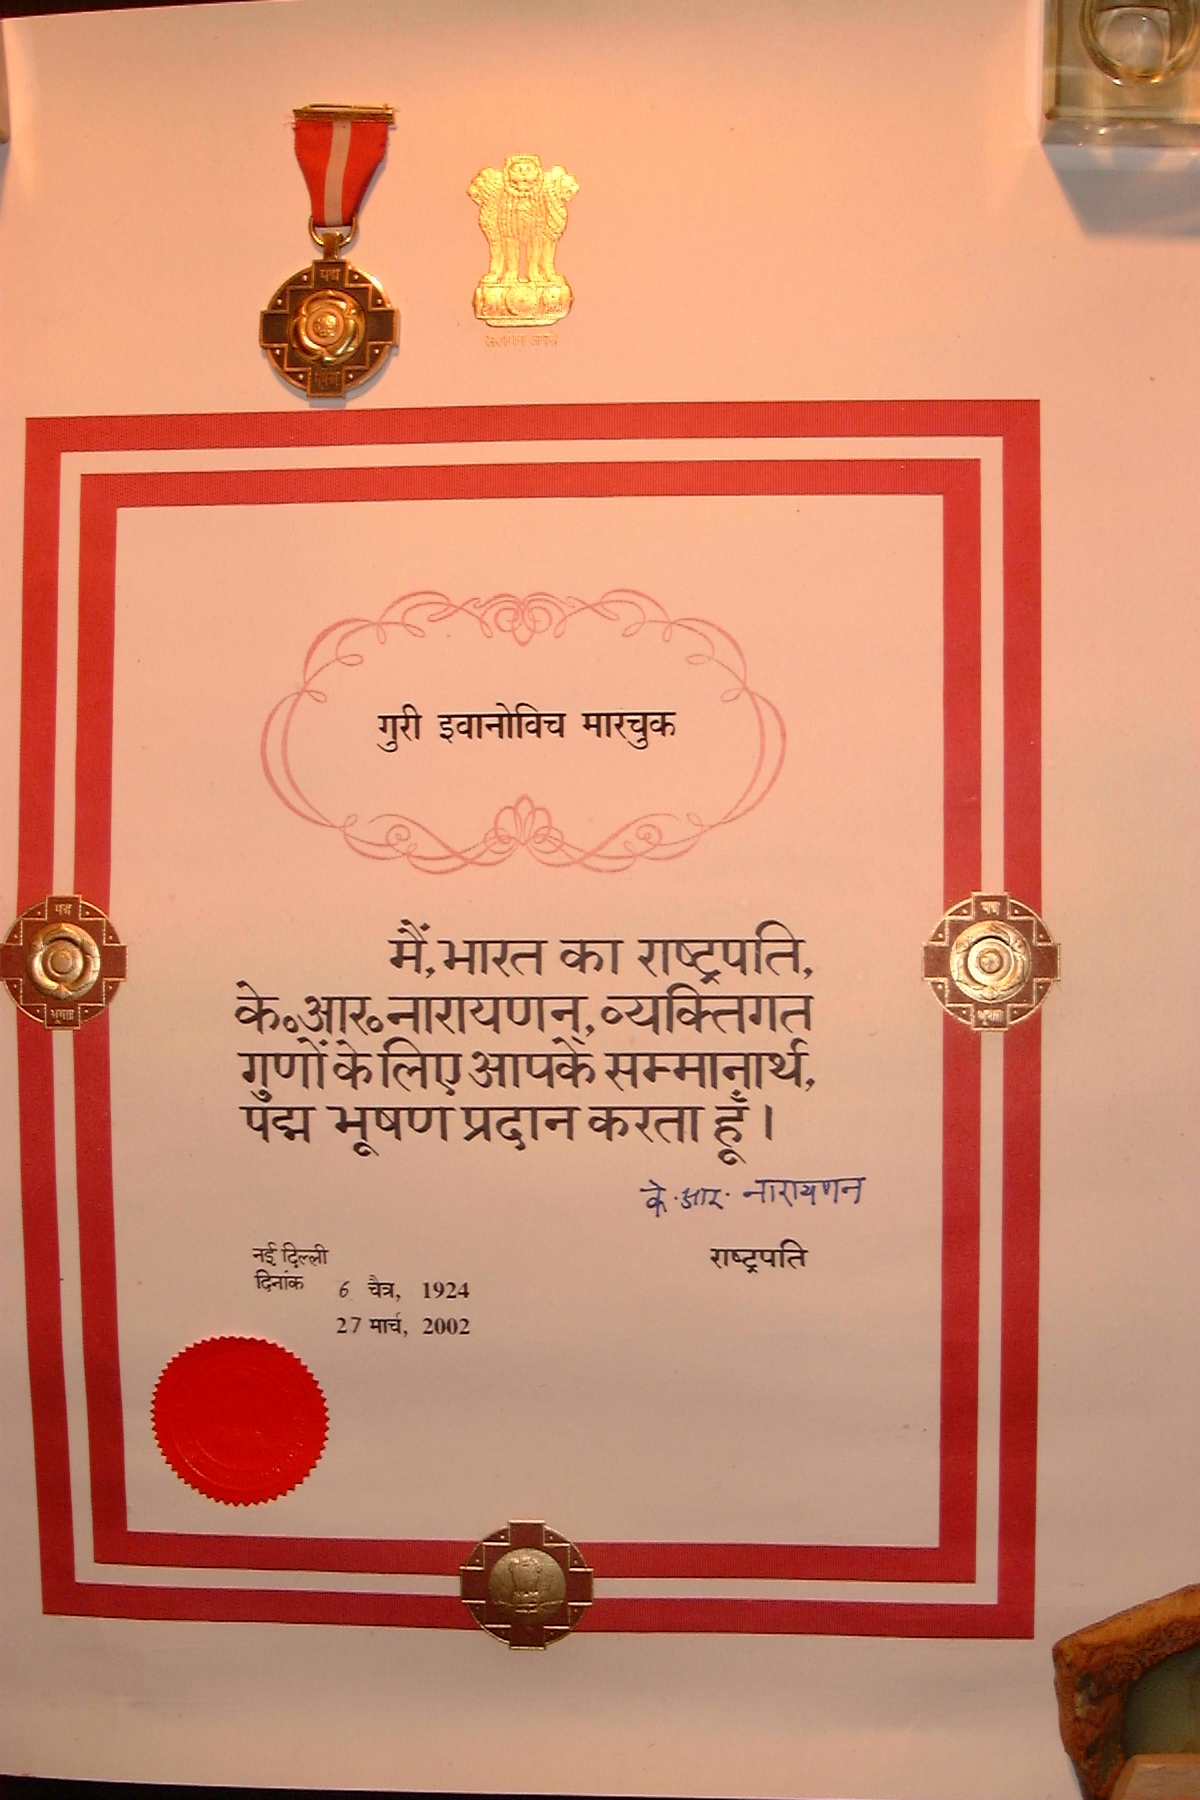 पद्म
भूषण
सत्यमेव जयते
गुरी इवानोविच मारचुक
मैं, भारत का राष्ट्रपति,
के॰आर॰नारायणन, व्यक्तिगत
गुणों के लिए आपके सम्मानार्थ,
पद्म भूषण प्रदान करता हूँ।
के. आर. नारायणन
राष्ट्रपति
नई दिल्ली
दिनांक 6 चैत्र, 1924
27 मार्च, 2002
पद्म
भूषण
पद्म
भूषण